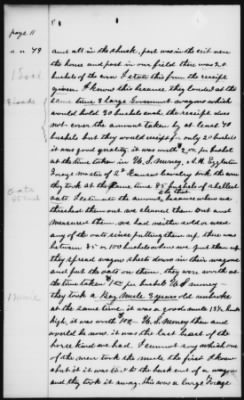 page 11
and all in the shuck, part was in the crib near
the house and part in our field there was 20
bushels of the corn I state this from the receipt
given. I know this because they loaded at the
same time 2 Large Government wagons which
would hold 30 bushels each. the receipt does
not cover the amount taken by at least 40
bushels but they would receipt only 20 bushels
it was good quality, it was worth per bushel
at the time taken in U.S. Money, A.H. Eggleton
Forage Master of 2d Kansas Cavalry took the corn
they took at the same time 85 bushels of shelled
oats I estimate the amount, because when we
thrashed them out we cleaned them out and
measured them. we had neither sold or used
any of the oats since putting them up. there was
between 85 or 100 bushels when we put them up
they spread wagon sheets down in their wagons
and put the oats on them. they were worth at
the time taken $1.00 per bushel U.S. money
they took a Bay Mule 3 years old unbroke
at the same time, it was a good mule 13½ hands
high, it was worth U.S. Money then and
would be now. it was the last beast of the
horse kind we had. I cannot say which one
of the men took the mule the first I knew
about it it was tied to the back end of a wagon
and they took it away. this was a large Forage